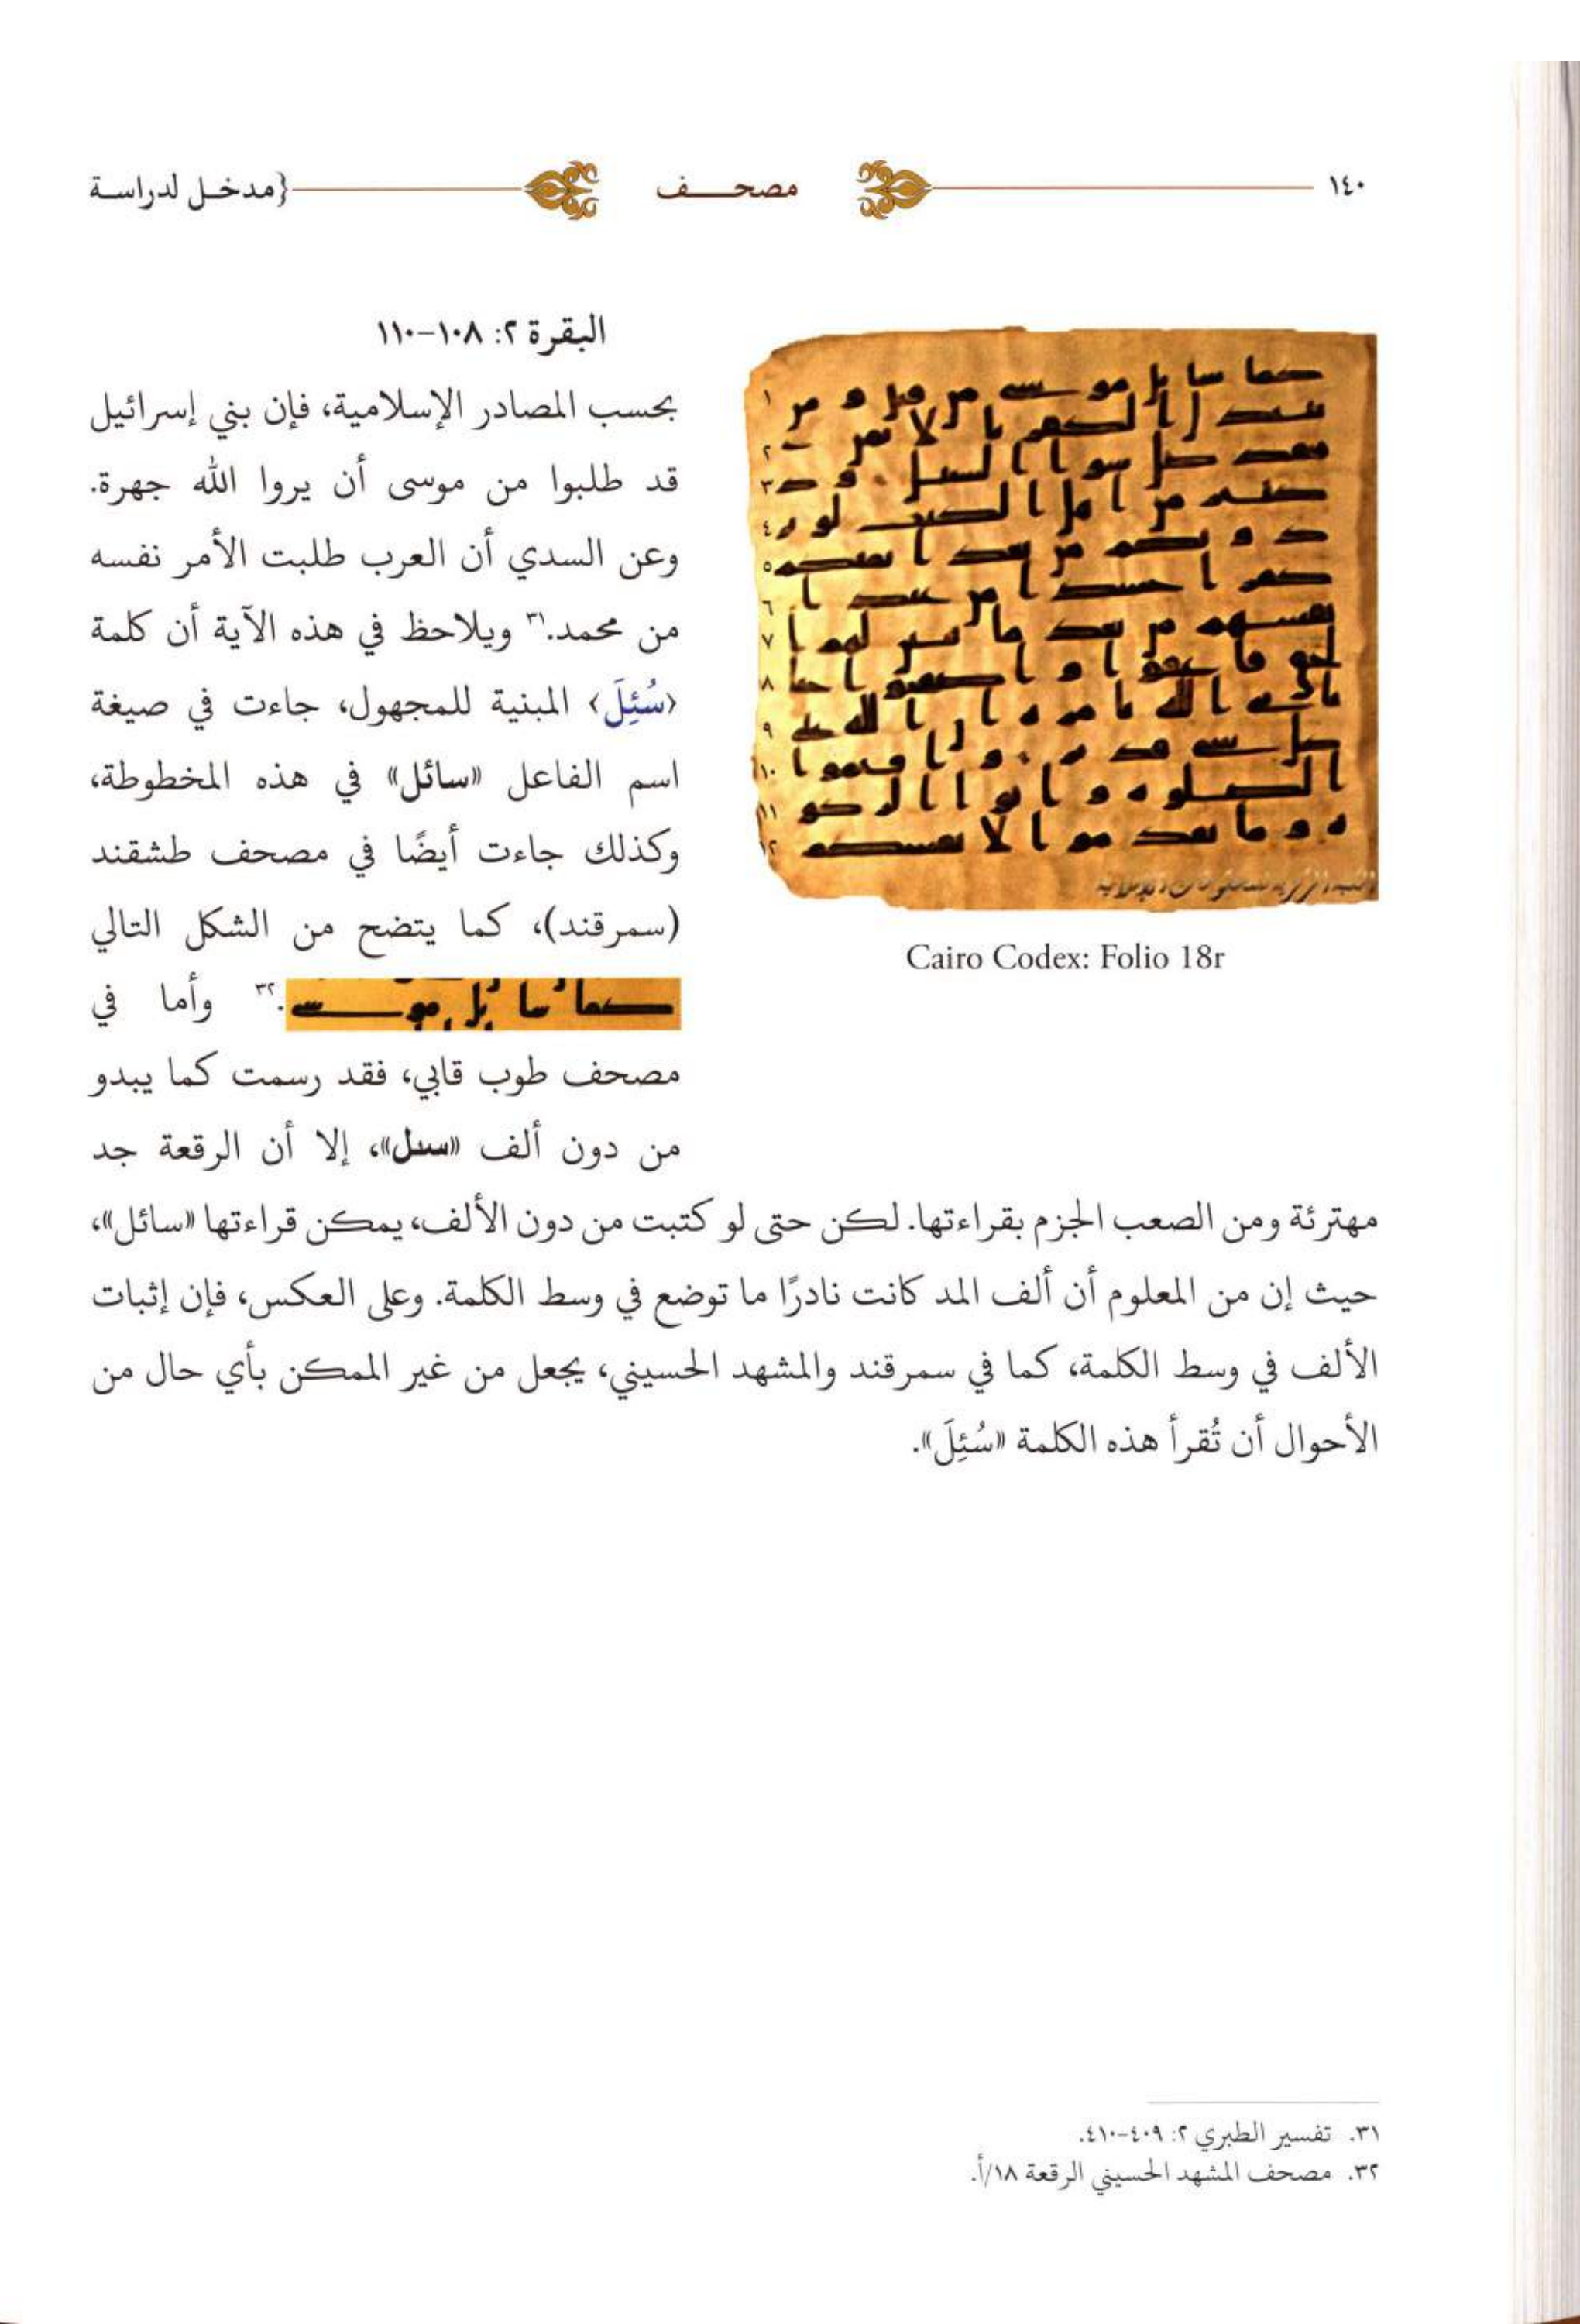 ١٤٠ مصحـــف {مدخـل لدراسـة
البقرة ٢: ١٠٨-١١٠
بحسب المصادر الإسلامية، فإن بني إسرائيل
قد طلبوا من موسى أن يروا الله جهرة.
وعن السدي أن العرب طلبت الأمر نفسه
من محمد.٣١ ويلاحظ في هذه الآية أن كلمة
﴿سُئِلَ﴾ المبنية للمجهول، جاءت في صيغة
اسم الفاعل «سائل» في هذه المخطوطة،
وكذلك جاءت أيضًا في مصحف طشقند
(سمرقند)، كما يتضح من الشكل التالي
.٣٢ وأما في
مصحف طوب قابي، فقد رسمت كما يبدو
من دون ألف «سىل»، إلا أن الرقعة جد
مهترئة ومن الصعب الجزم بقراءتها. لكن حتى لو كتبت من دون الألف، يمكن قراءتها «سائل»،
حيث إن من المعلوم أن ألف المد كانت نادرًا ما توضع في وسط الكلمة. وعلى العكس، فإن إثبات
الألف في وسط الكلمة، كما في سمرقند والمشهد الحسيني، يجعل من غير الممكن بأي حال من
الأحوال أن تُقرأ هذه الكلمة «سُئِلَ».
١
٢
٣
٤
٥
٦
٧
٨
٩
١٠
١١
١٢
Cairo Codex: Folio 18r
٣١. تفسير الطبري ٢: ٤٠٩-٤١٠.
٣٢. مصحف المشهد الحسيني الرقعة ١٨/أ.